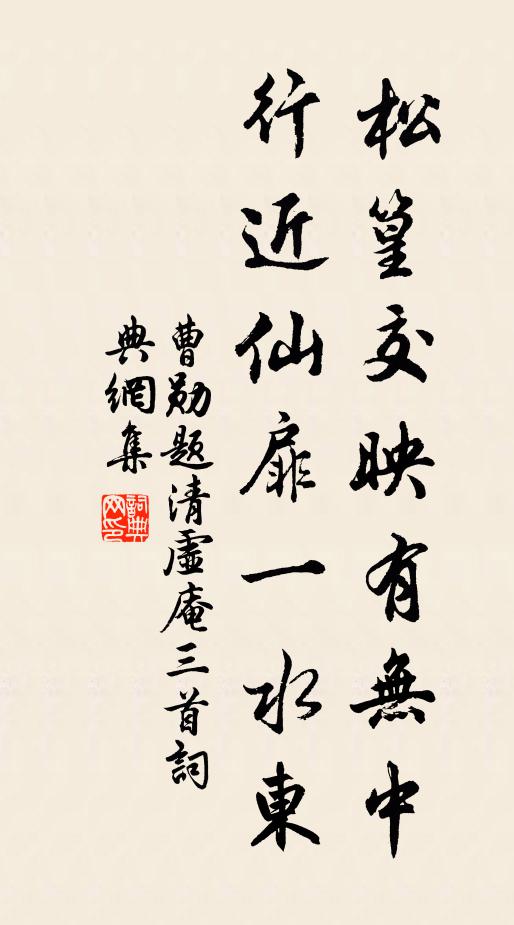 松篁交映有無中
行近仙扉一水東
曹勛題清虛庵三首詞
典網集
詞典網印